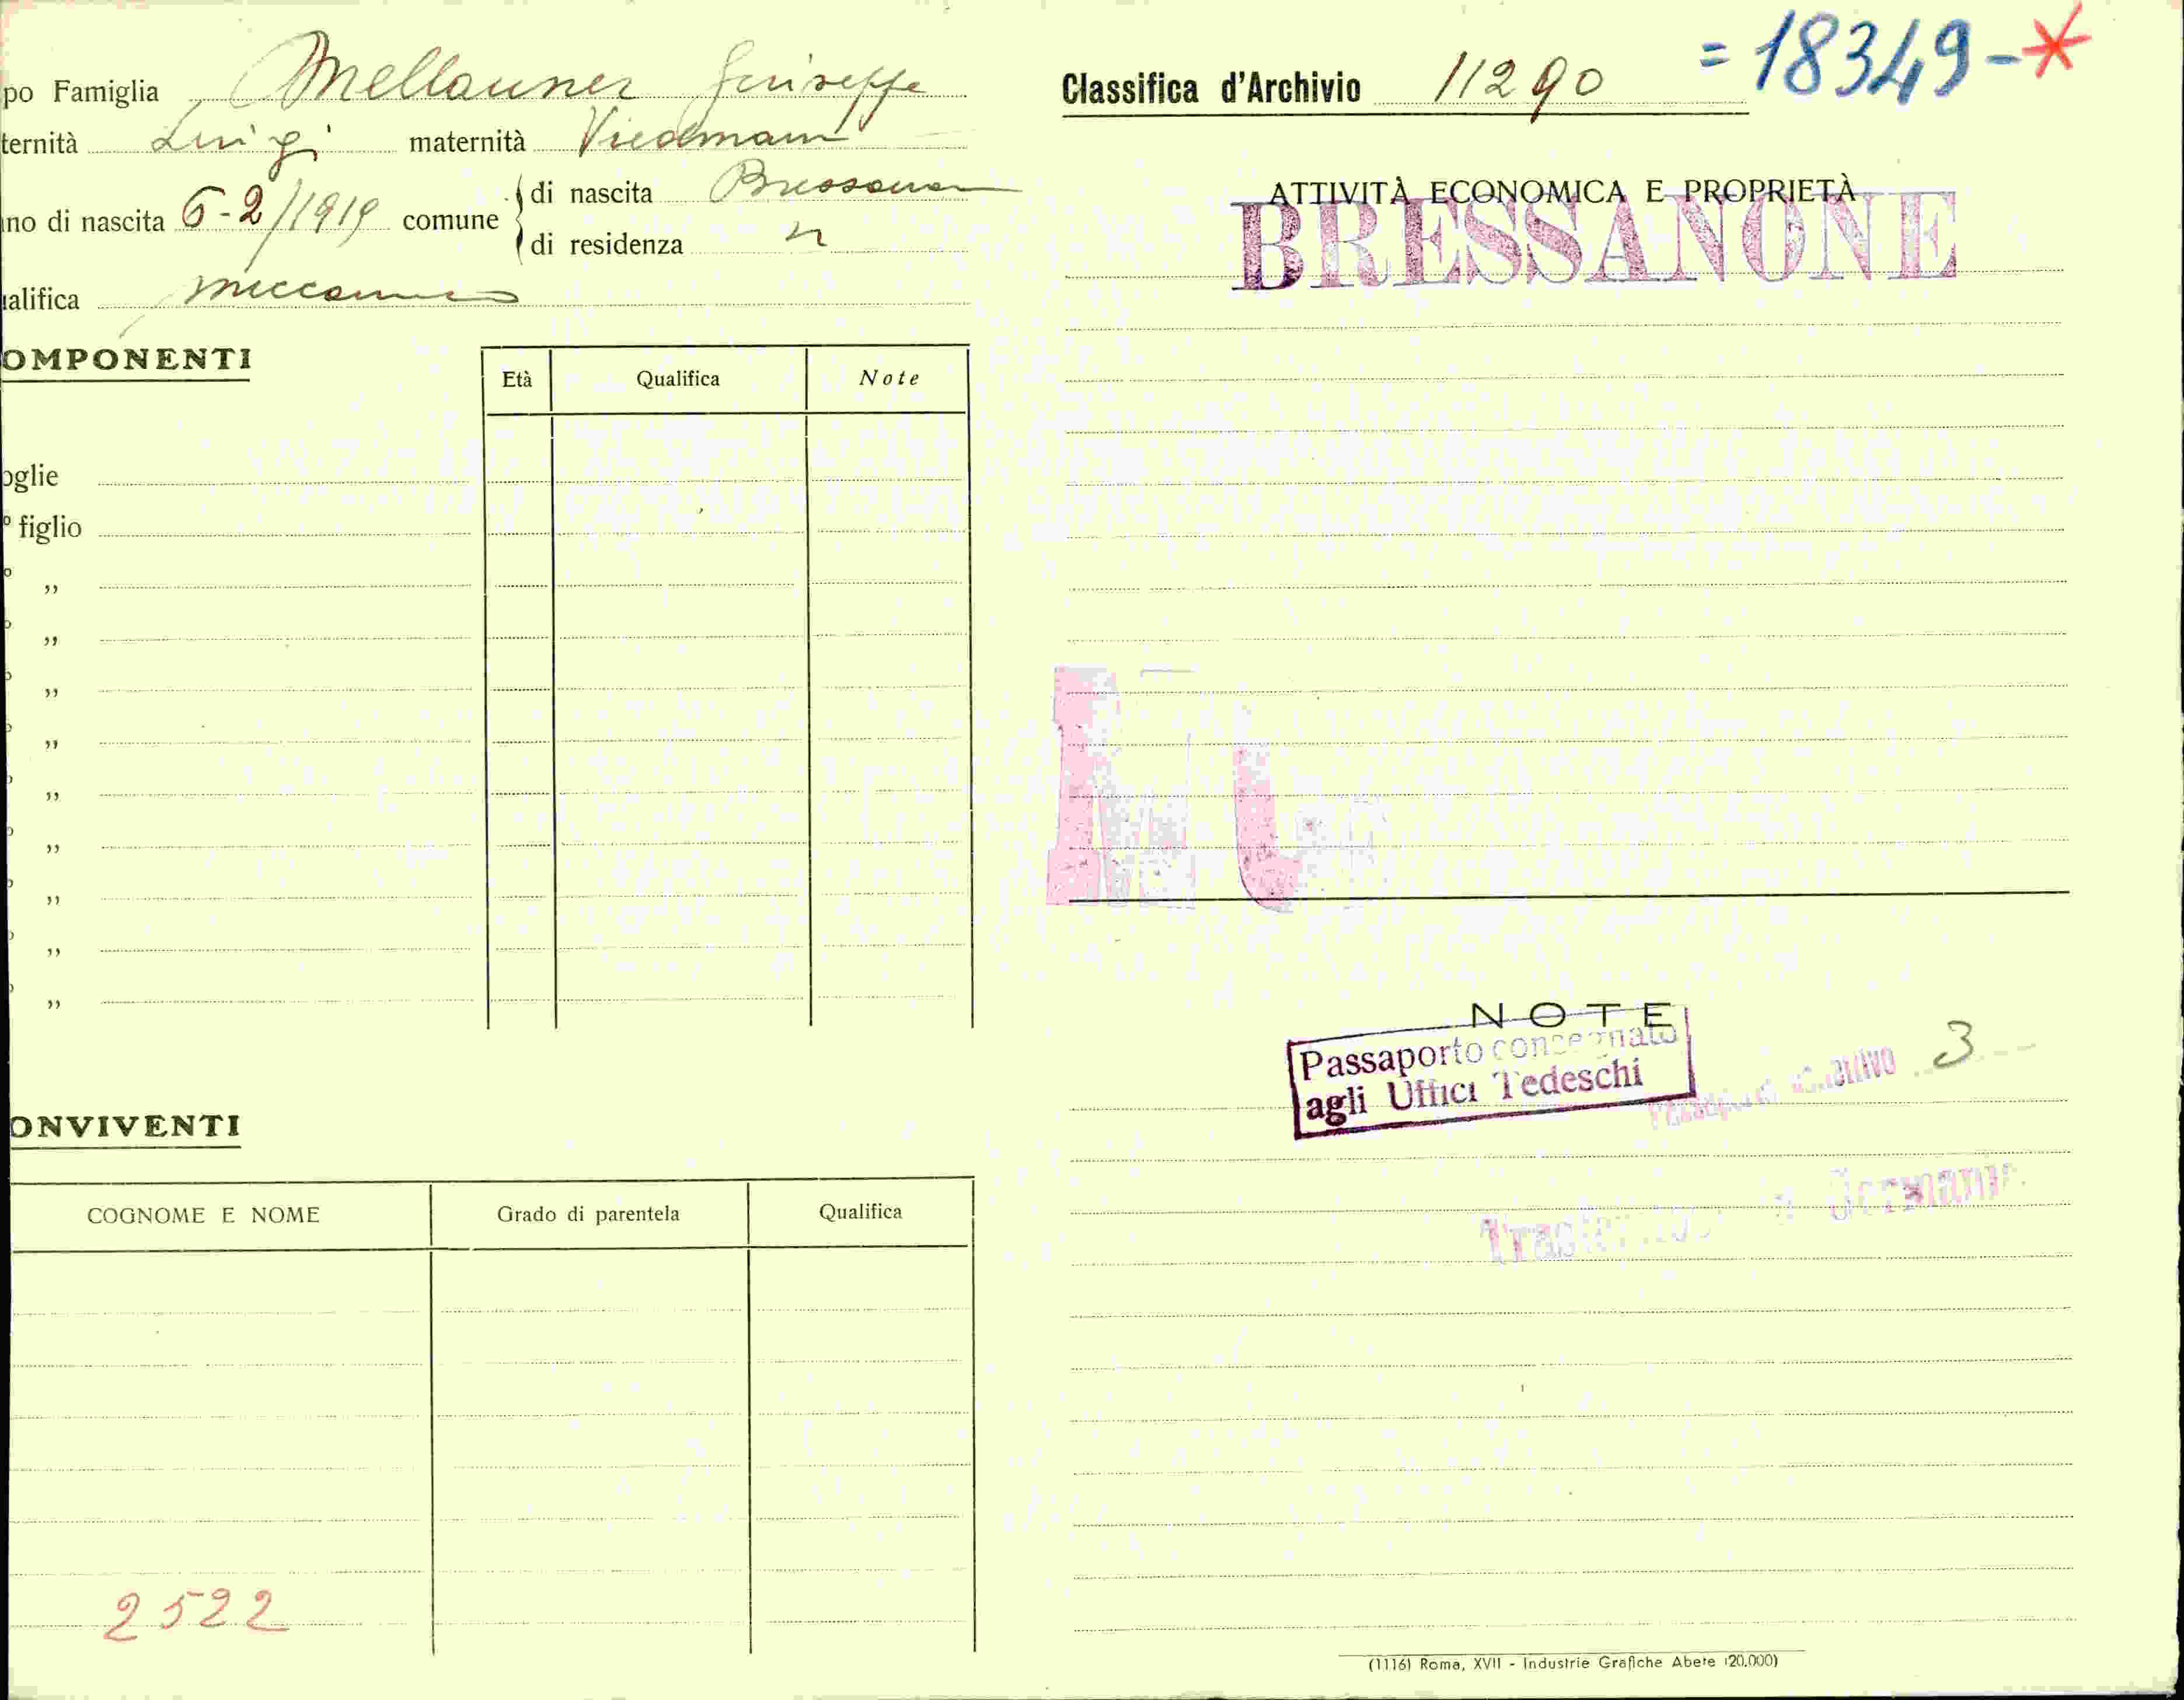 po Famiglia Mellauner Giuseppe
ternità Luigi maternità Viedmann
no di nascita 6-2/1919 comune di nascita Bressanone
di residenza "
alifica meccanico
OMPONENTI
Età Qualifica Note
oglie
º figlio
„
„
„
„
„
„
„
„
„
ONVIVENTI
COGNOME E NOME Grado di parentela Qualifica
2522
Classifica d'Archivio 11290 = 18349-*
ATTIVITÀ ECONOMICA E PROPRIETÀ
BRESSANONE
NOTE
Passaporto consegnato
agli Uffici Tedeschi
3
Trasferito in Germania
(1116) Roma, XVII - Industrie Grafiche Abete (20.000)